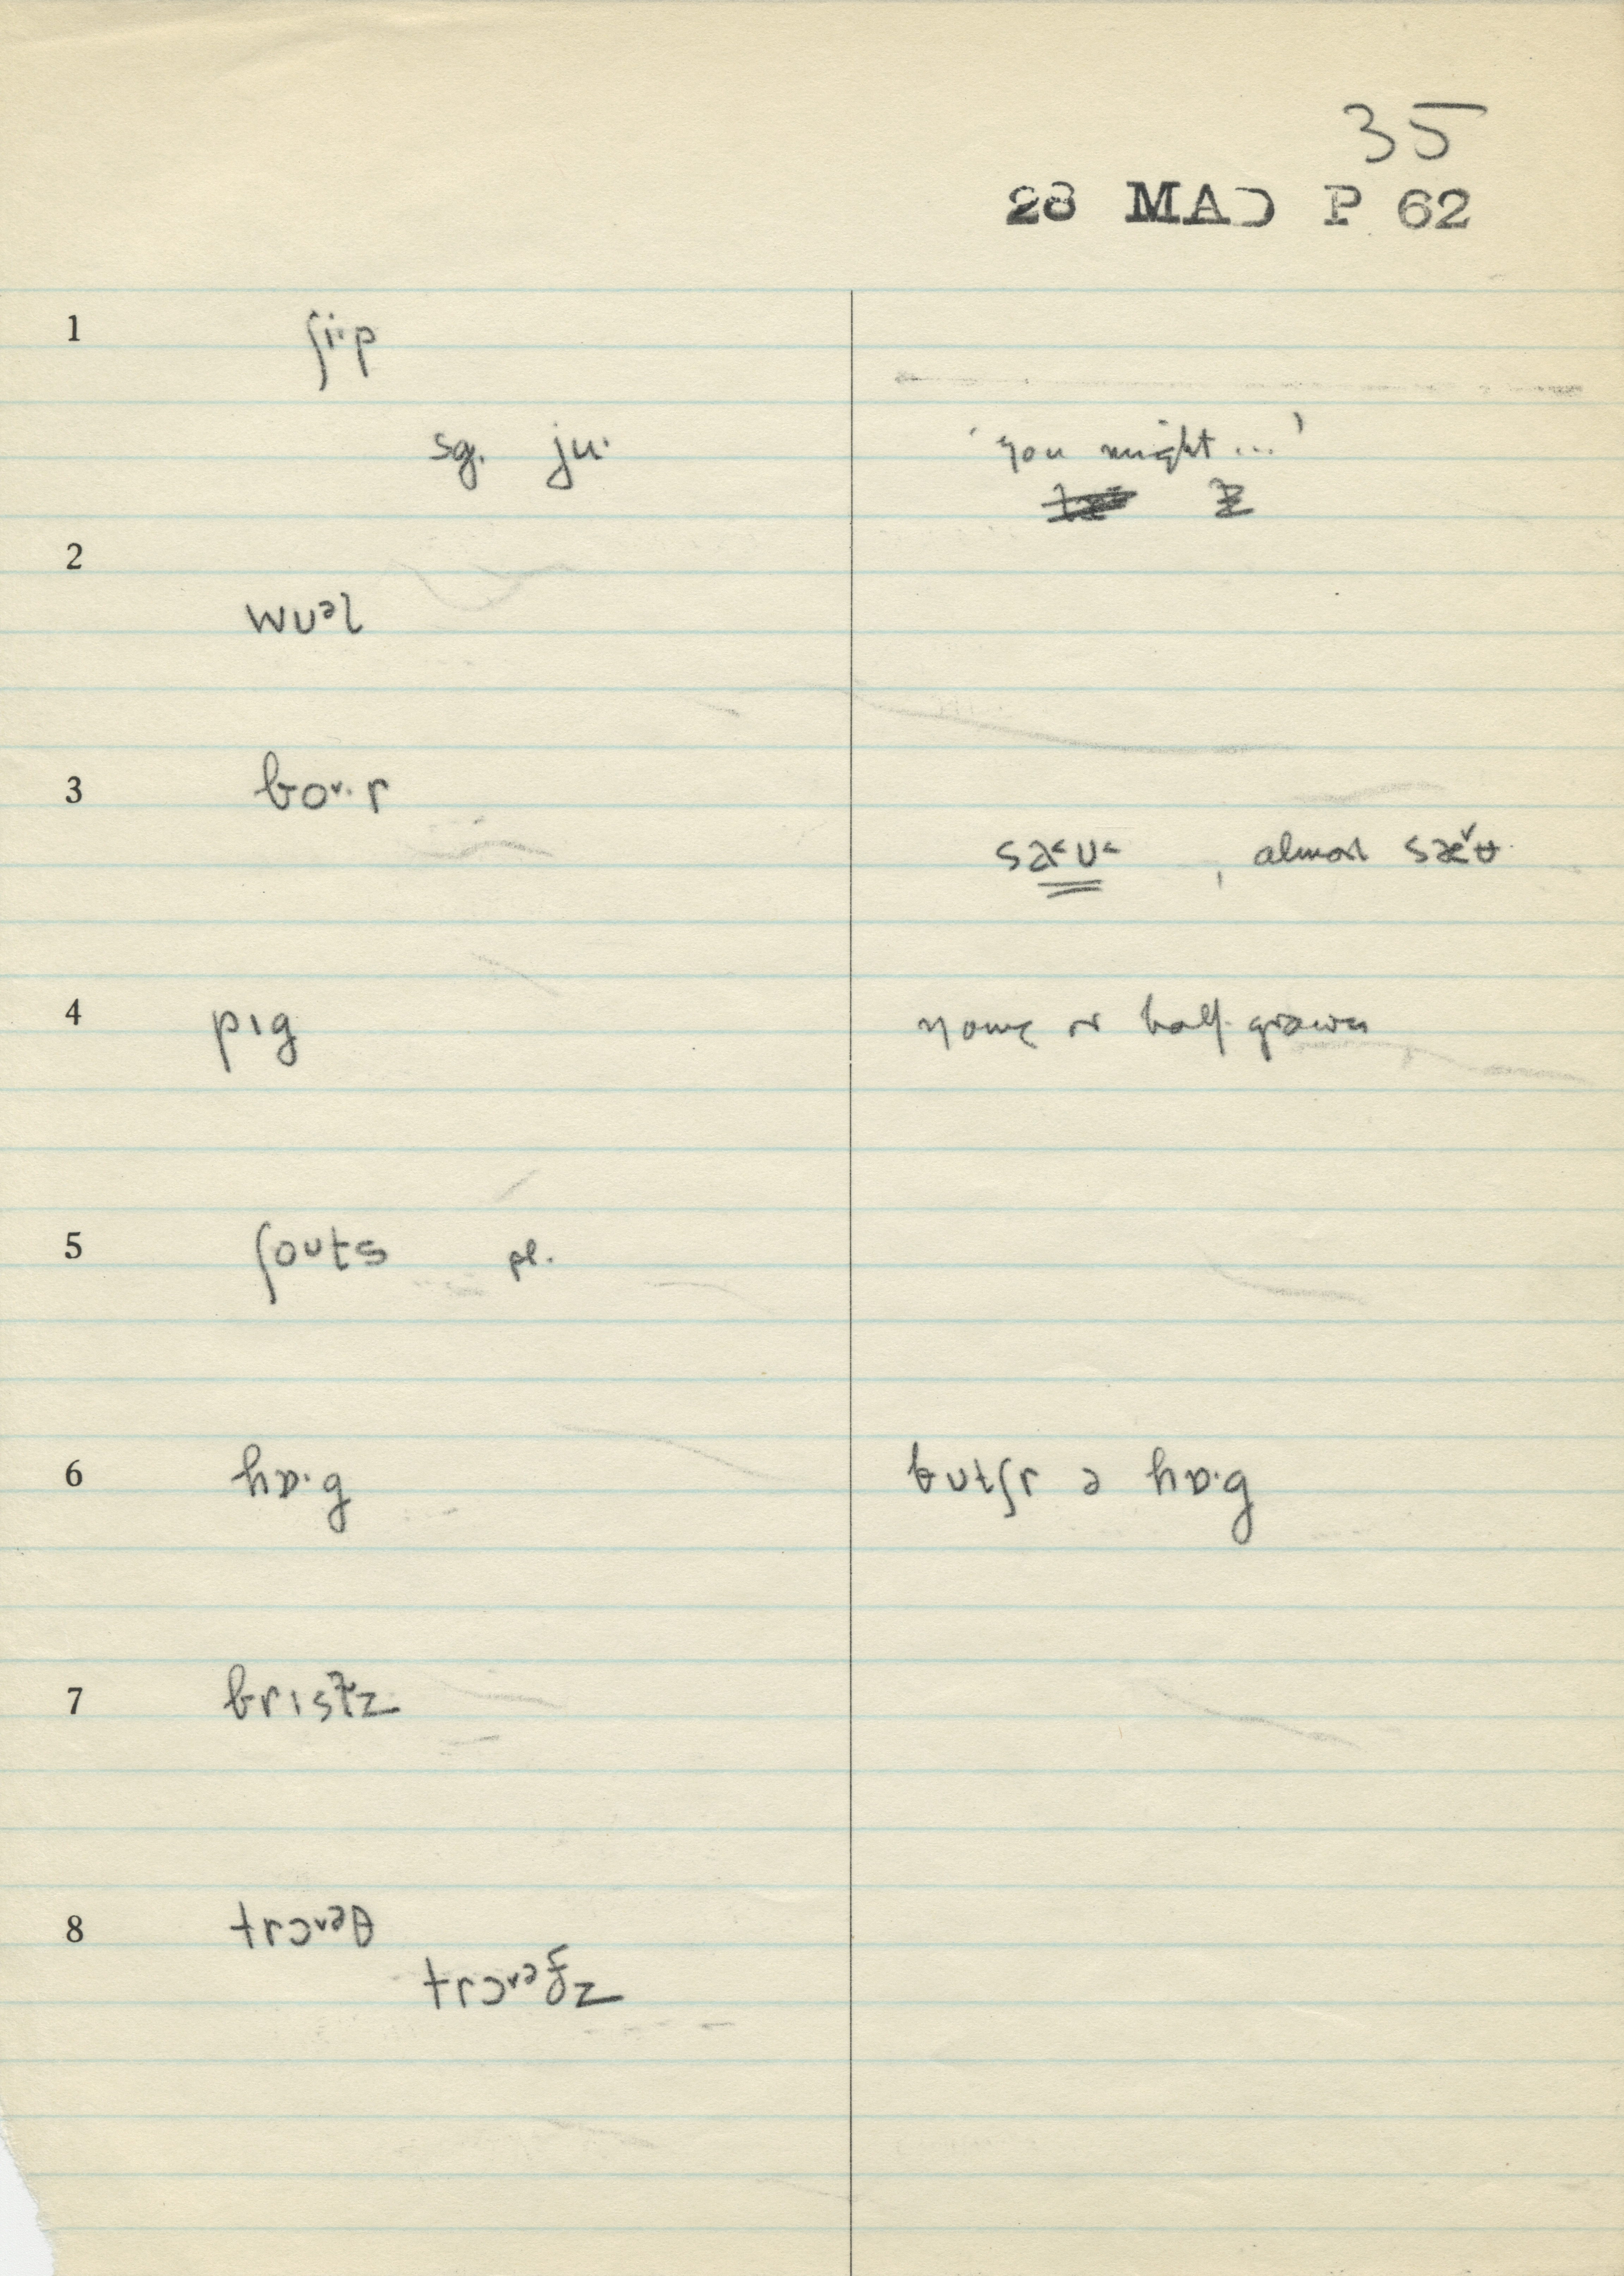 35
28 MAD P 62
1 ʃi·p
sg. ju· 'you might...'
2
wuᵊl
3 boᵛ·r
saᶺʊᶺ , almost sæ̌ʉ
4 pɪg young or half-grown
5 ʃoʊts pl.
6 hɒ·g butʃr ə hɒ·g
7 brɪstl̩z
8 trɔᵛᵊθ
trɔᵛᵊðz